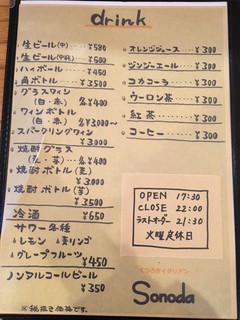 drink
生ビール(中) ¥580
生ビール ¥500
ハイボール ¥450
角ボトル ¥3500
グラスワイン
(白・赤) 各¥400
ワインボトル
(白・赤) 各¥3000
スパークリングワイン
¥3000
焼酎グラス
(麦・芋) 各¥400
焼酎ボトル(麦)
¥3000
焼酎ボトル(芋)
¥3500
冷酒 ¥650
サワー各種
レモン 青リンゴ
グレープフルーツ
¥450
ノンアルコールビール
¥350
※税抜き価格です。
オレンジジュース ¥300
ジンジーエール ¥300
コカコーラ ¥300
ウーロン茶 ¥300
紅茶 ¥300
コーヒー ¥300
OPEN 17:30
CLOSE 22:00
ラストオーダー 21:30
火曜定休日
くつろぎイタリアン
Sonoda